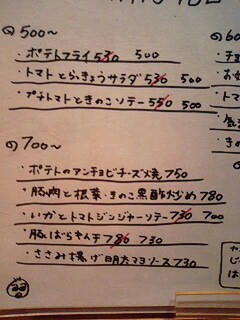 の500〜
・ポテトフライ 530 500
・トマトとらっきょうサラダ 530 500
・プチトマトときのこソテー 550 500
の700〜
・ポテトのアンチョビチーズ焼 750
・豚肉と根菜・きのこ黒酢炒め 780
・いかとトマトジンジャーソテー 730 700
・豚ばらキムチ 780 730
・ささみ揚げ明太マヨソース 730
の60
・チョ
・お
・トマ
・気
・きの